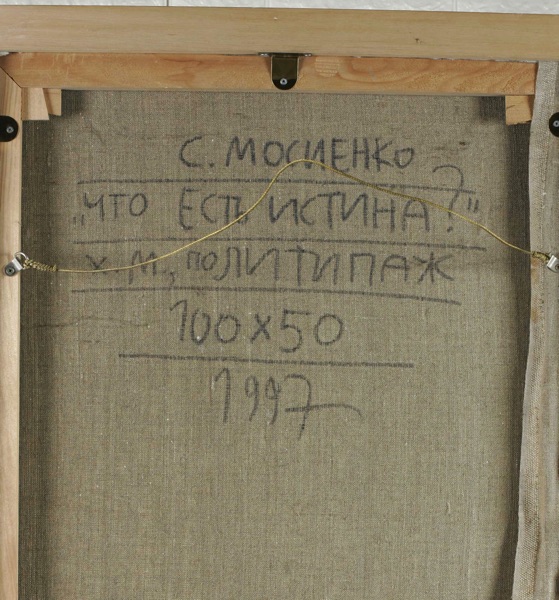 С. МОСИЕНКО
„ЧТО ЕСТЬ ИСТИНА?"
Х. М., ПОЛИТИПАЖ
100х50
1997